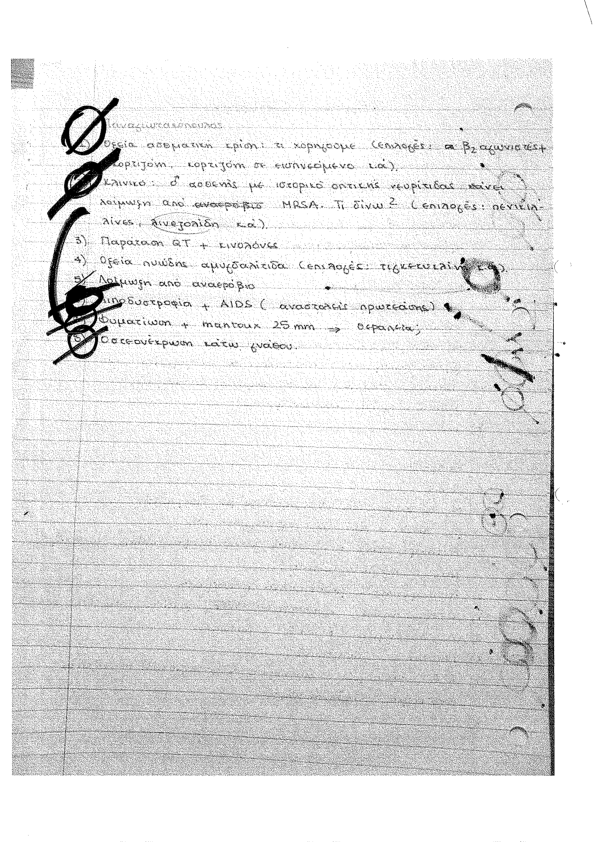 Παναγιωτακόπουλος
1) Οξεία ασθματική κρίση: τι χορηγούμε (επιλογές: β2 αγωνιστές +
κορτιζόνη, κορτιζόνη σε εισπνεόμενο κ.ά).
Κλινικό: ♂ ασθενής με ιστορικό οπτικής νευρίτιδας κάνει
λοίμωξη από αναερόβιο MRSA. Τι δίνω? (επιλογές: πενικιλ-
λίνες, λινεζολίδη κ.ά).
3) Παράταση QT + κινολόνες
4) Οξεία πυώδης αμυγδαλίτιδα (επιλογές: τιγκεκυκλίνη κ.ά).
5) Λοίμωξη από αναερόβιο
Λιποδυστροφία + AIDS (αναστολείς πρωτεάσης)
Φυματίωση + mantoux 25mm ⇒ θεραπεία;
8) Οστεονέκρωση κάτω γνάθου.